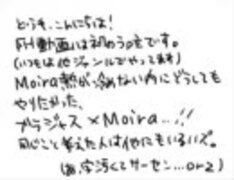 どうも、こんにちは!
FH動画は初めうpです。
(いつもは他ジャンルでやってます)
Moira熱が冷めない内にどうしても
やりたかった、
ブラジャス×Moira...!!
同じこと考えた人は他にもいるハズ。
(あ、字汚くてサーセン...orz)